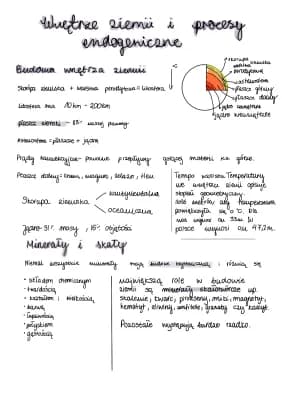 Wnętrze ziemii i procesy
endogeniczne
Budowa wnętrza ziemii
skorupa
ziemska
warstwa
perydotytowa
astenosfera
płaszcz górny
płaszcz dolny
jądro zewnętrzne
jądro wewnętrzne
Skorupa ziemska + warstwa perydotytowa = litosfera
Litosfera ma 10km - 200km
płaszcz ziemski - 83% naszej planety
= płaszcz + jądro
Prądy konwekcyjne - powolne przepływy gorącej materii ku górze.
Płaszcz dolny: krzem, magnez, żelazo, tlen
Skorupa ziemska
kontynentalna
oceaniczna
Jądro: 31% masy, 16% objętości
Tempo wzrostu Temperatury
we wnętrzu ziemi opisuje
stopień geotermiczny,
ilość metrów, aby temperatura
powiększyła się o 1°C. Dla
wynosi on 33m. W
polsce wynosi on 47,2m.
Minerały i skały
Niemal wszystkie minerały mają budowę krystaliczną i różnią się
• składem chemicznym
• twardością
• kształtem i wielkością
• barwą
• łupliwością
• połyskiem
• gęstością
największą rolę w budowie
ziemii są minerały skałotwórcze np.
skalenie, kwarc, pirokseny, miki, magnetyt,
hematyt, oliwiny, amfibole, granaty czy kalcyt.
Pozostałe występują bardzo rzadko.